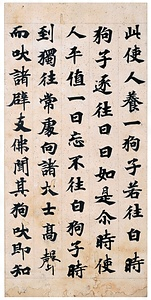 此使人養一狗子若往白時
狗子逐往日日如是尒時使
人卒值一日忘不往白狗子時
到獨往常處向諸大士高聲
而吠諸辟支佛聞其狗吠即知